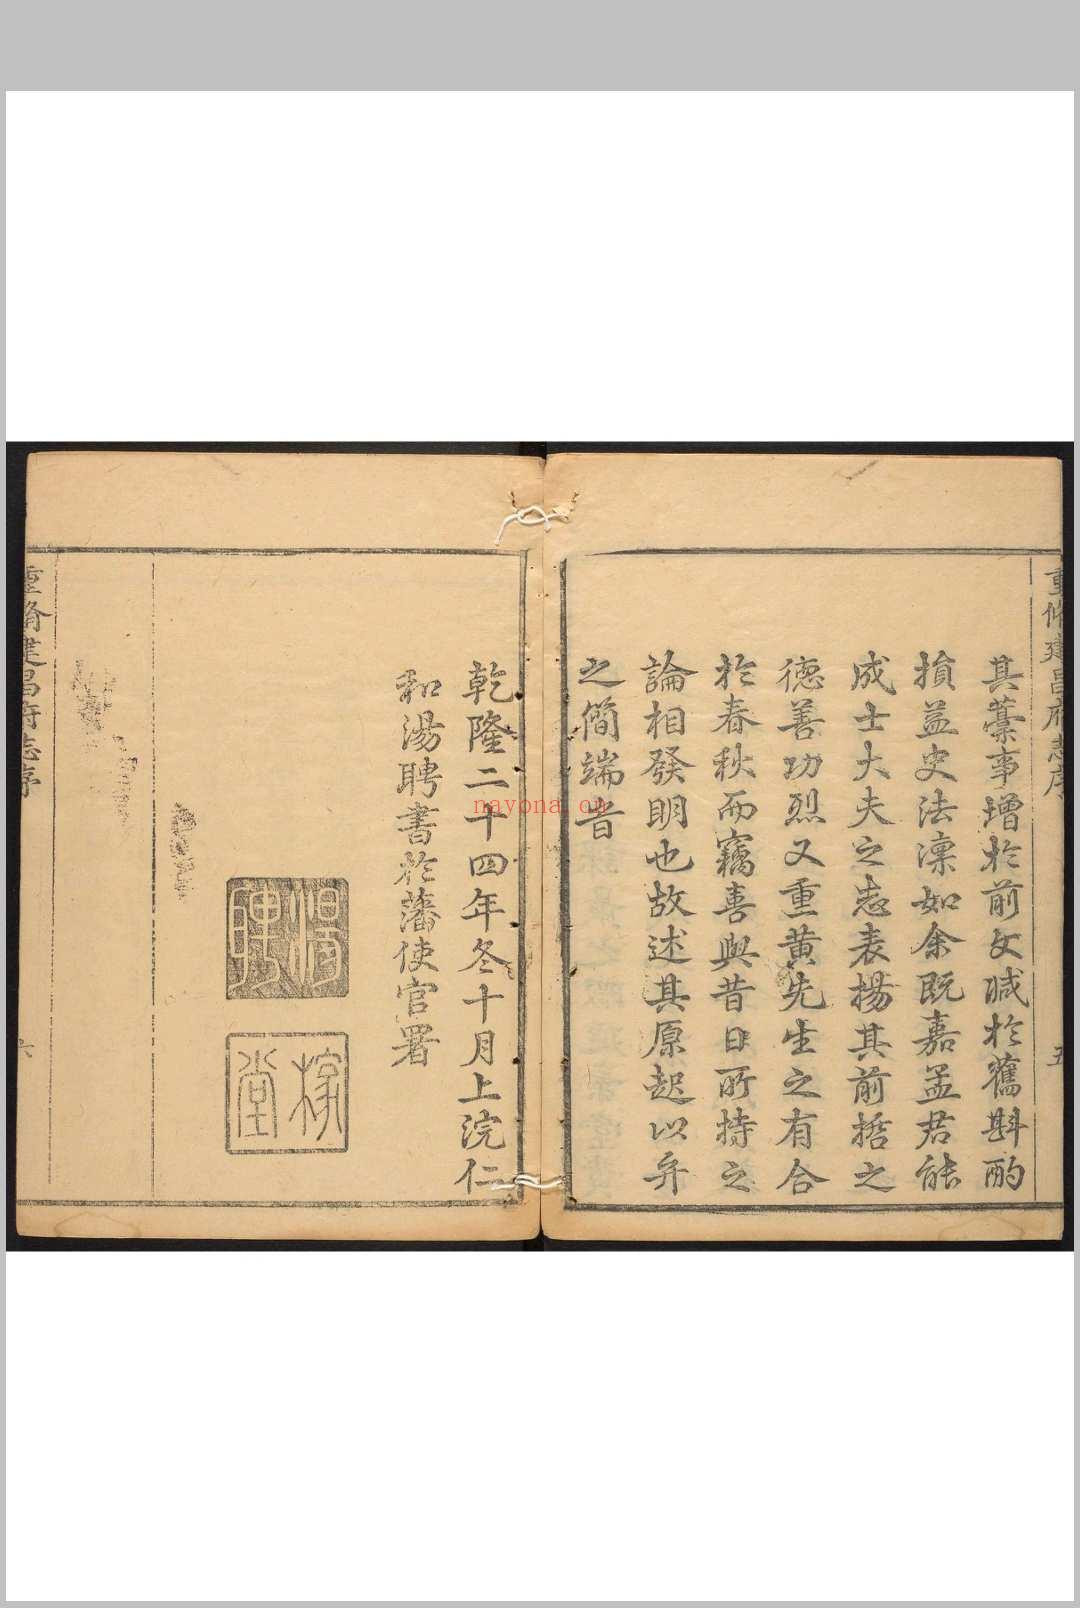 重脩建昌府志序
五
其藁事增於前文減於舊斟酌
損益史法凜如余既嘉孟君能
成士大夫之志表揚其前喆之
德善功烈又重黄先生之有合
於春秋而竊喜與昔日所持之
論相發明也故述其原起以弁
之簡端旹
乾隆二十四年冬十月上浣仁
和湯聘書於藩使官署
湯聘
稼堂
重脩建昌府志序
六
nayona.cn